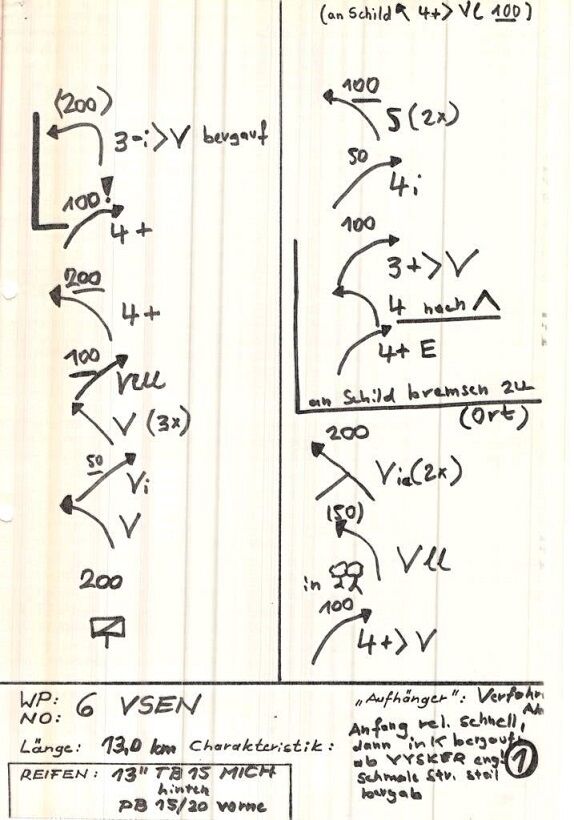 (an Schild 4+> VL 100)
(200)
3-i>V bergauf
100 !
4+
200
4+
100
VLLL
V (3x)
50
Vi
V
200
100
5 (2x)
50
4i
100
3+>V
4 nach Λ
4+ E
an Schild bremsen zu
(Ort)
200
Via (2x)
(50)
VLL
in
100
4+> V
WP: 6 VSEN
NO:
Länge: 13,0 km Charakteristik:
REIFEN: 13" TB 15 MICH
hinten
PB 15/20 vorne
„Aufhänger": Verfahr
Anfang rel. schnell,
dann in K bergauf,
ab VYSKER eng
schmale Str. steil
bergab
1